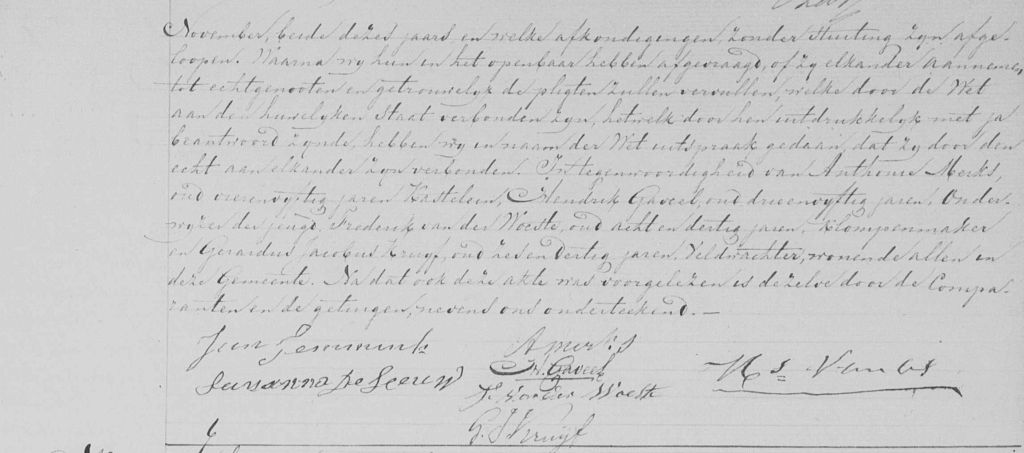 November, beide dezes jaars, en welke afkondigingen, zonder stuiting zyn afge-
loopen. Waarna wy hun in het openbaar hebben afgevraagd, of zy elkander aannemen
tot echtgenooten en getrouwelyk de pligten zullen vervullen, welke door de Wet
aan den huwelyken Staat verbonden zyn, hetwelk door hen uitdrukkelyk met ja
beantwoord zynde, hebben wy in naam der Wet uitspraak gedaan, dat zy door den
echt aan elkander zyn verbonden. In tegenwoordigheid van Anthonie Merks,
oud vierenvyftig jaren Kastelein, Hendrik Gaveel, oud drieenvyftig jaren, Onder-
wyzer der jeugd, Frederik van der Woeste, oud acht en dertig jaren, Klompenmaker
en Gerardus Jacobus Kruyf, oud zes en dertig jaren, Veldwachter, wonende allen in
deze Gemeente. Na dat ook deze akte was voorgelezen is dezelve door de Compa-
ranten en de getuigen, nevens ons onderteekend. —
Jan Temmink
A Merks
Susanna De Leeuw
H. Gaveel
F. van der Woeste
G. J. Kruyf